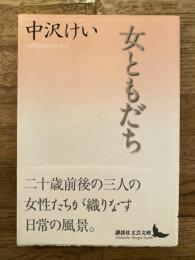 中沢けい
Nakazawa Kei
女ともだち
二十歳前後の三人の
女性たちが織りなす
日常の風景。
講談社文芸文庫
Kodansha Bungei bunko